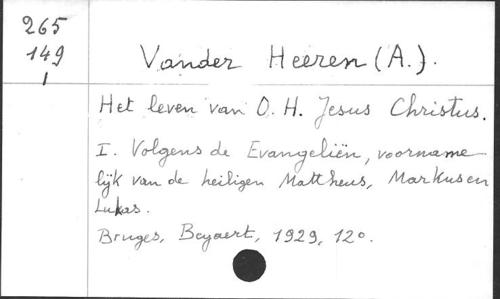 265
149
1
Vander Heeren (A.).
Het leven van O. H. Jesus Christus.
I. Volgens de Evangeliën, voorname
lijk van de heiligen Mattheus, Markus en
Lukas.
Bruges, Beyaert, 1929, 12°.